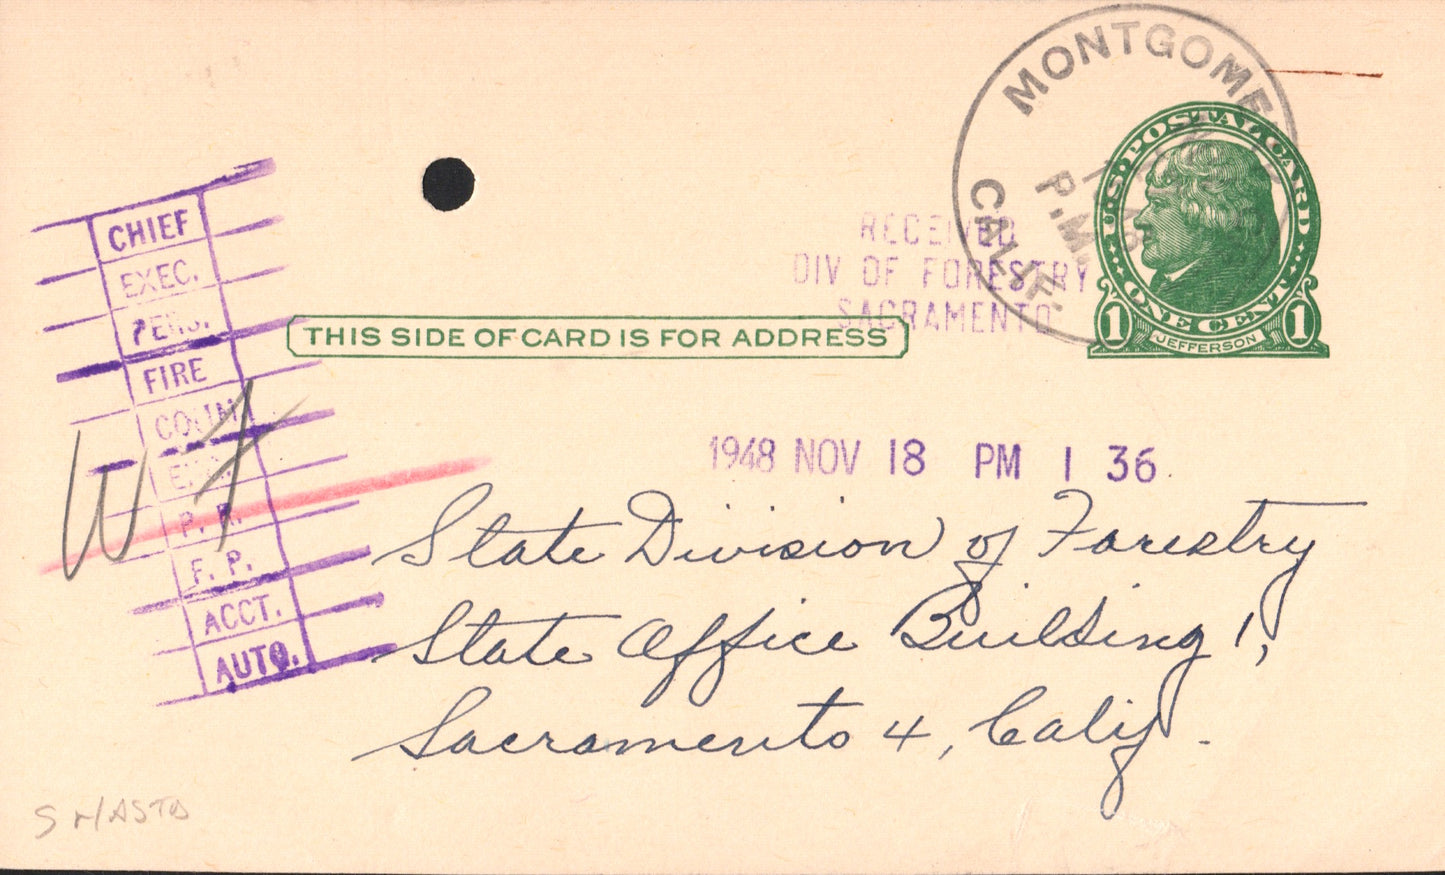 MONTGOME
CALIF.
P.M.
U.S. POSTAL CARD
ONE CENT
1 JEFFERSON 1
RECEIVED
DIV OF FORESTRY
SACRAMENTO
THIS SIDE OF CARD IS FOR ADDRESS
1948 NOV 18 PM 1 36
CHIEF
EXEC.
PERS.
FIRE
P. R.
F. P.
ACCT.
AUTO.
State Division of Forestry
State Office Building 1,
Sacramento 4, Calif.